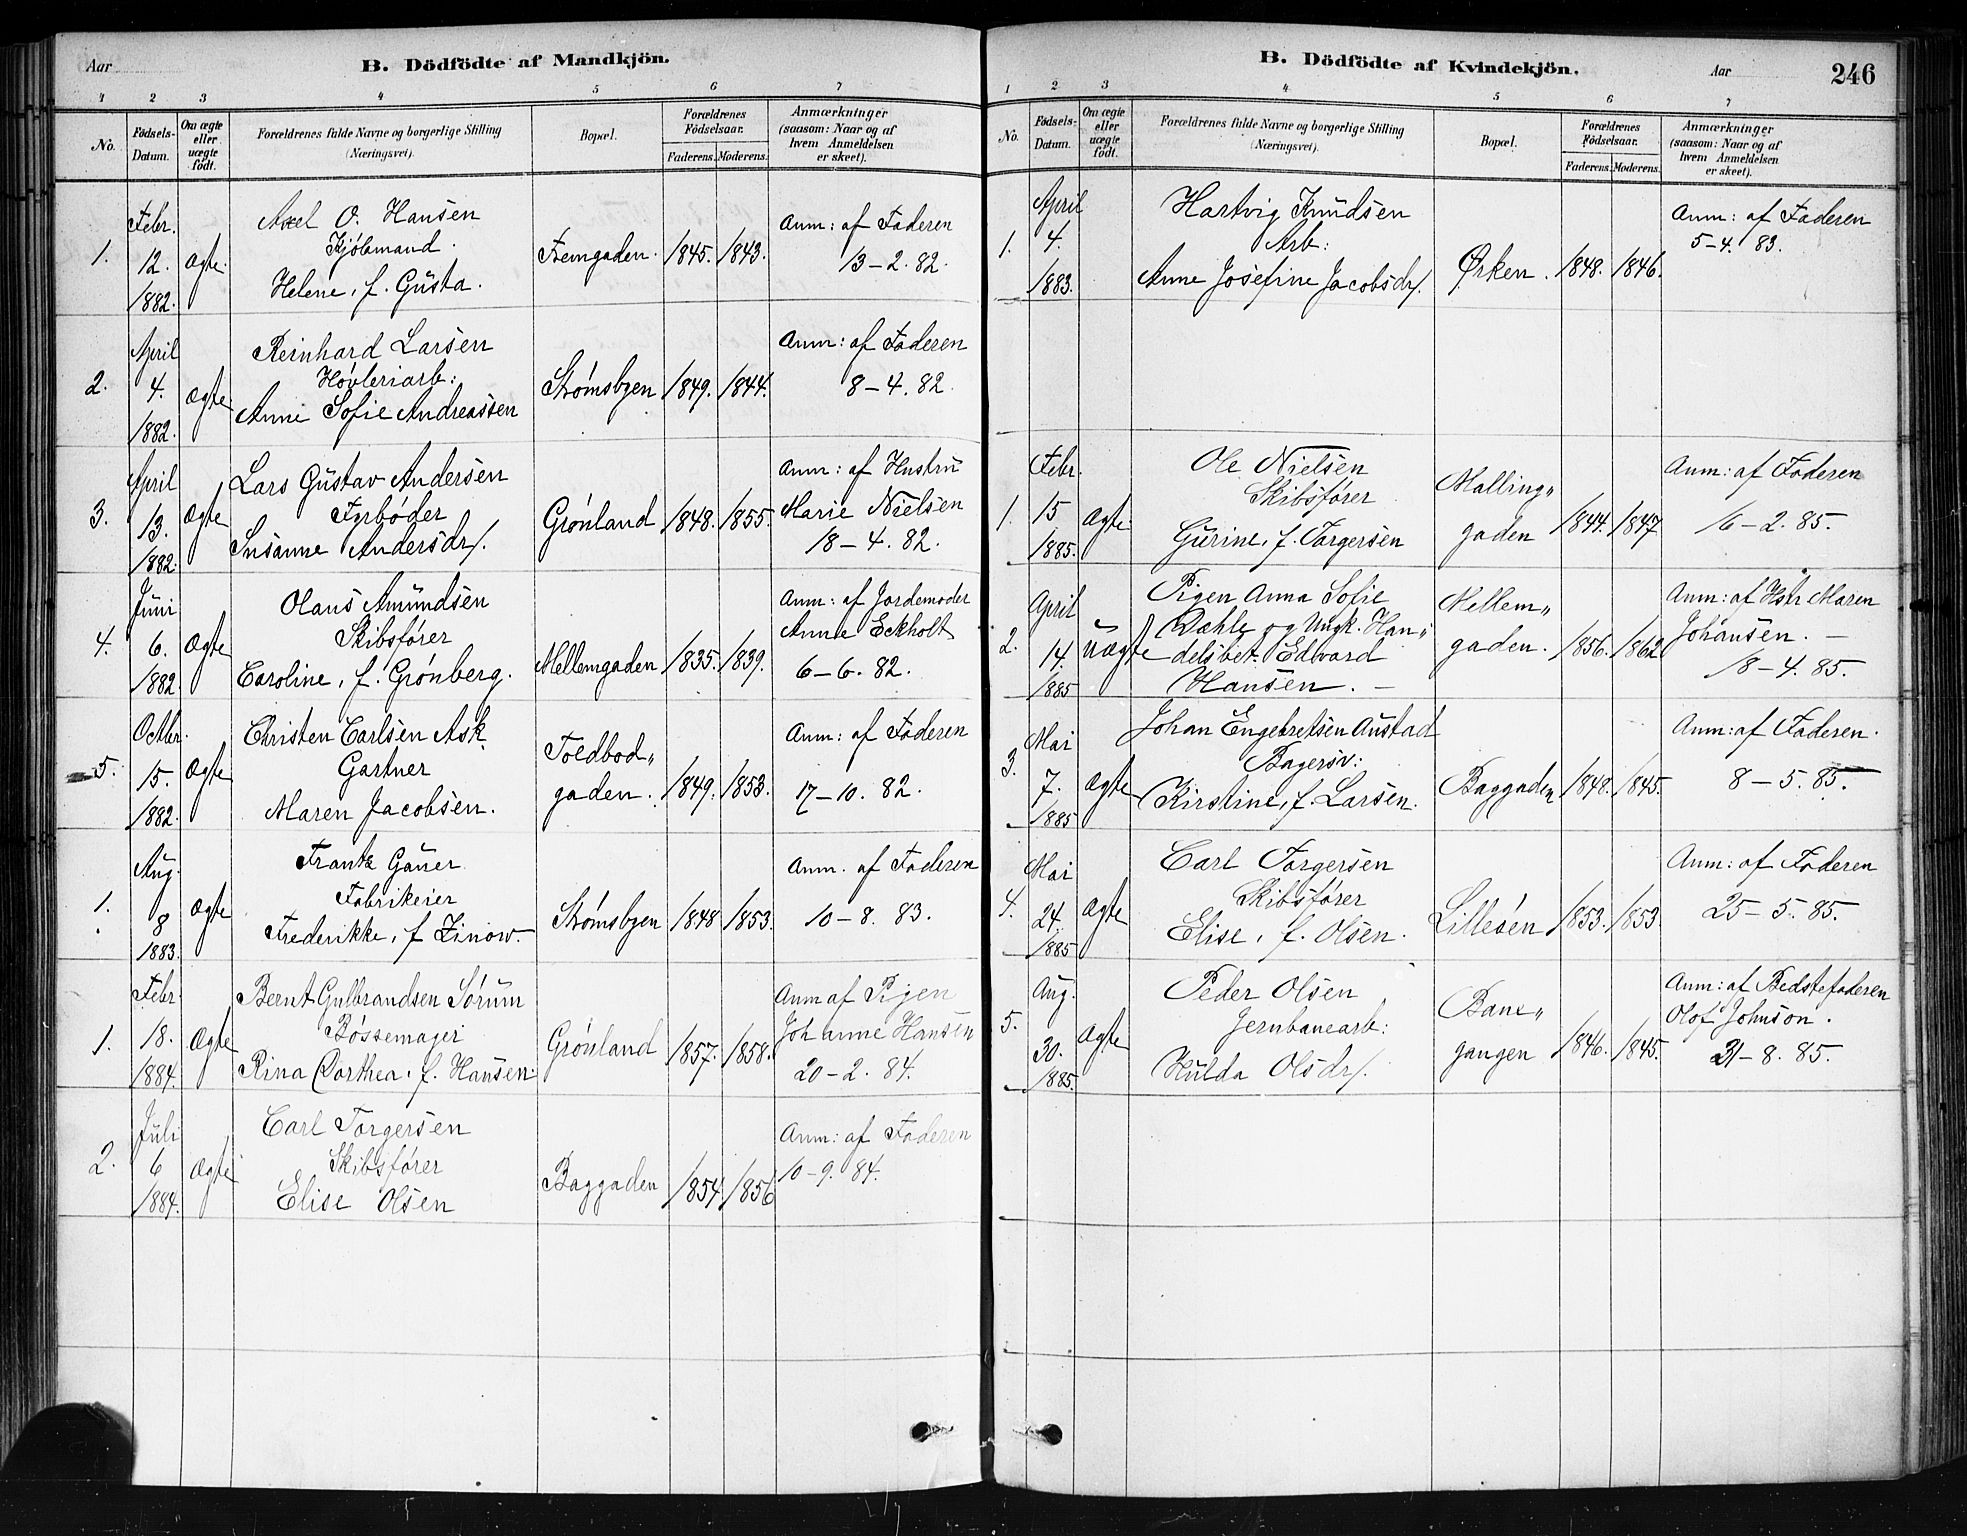 Aar
B. Dödfödte af Mandkjön.
1 2 3 4 5 6 7
No.
Födsels-Datum.
Om ægte eller uægte födt.
Forældrenes fulde Navne og borgerlige Stilling
(Næringsvei).
Bopæl.
Forældrenes Födselsaar.
Faderens. Moderens.
Anmærkninger
(saasom: Naar og af
hvem Anmeldelsen
er skeet).
1. Febr. 12. 1882. Ægte
Axel O. Hansen
Kjøbmand.
Helene, f. Gusta.
Femgaden. 1845. 1843.
Anm: af Faderen
13-2. 82.
2. April 4. 1882. Ægte
Reinhard Larsen
Høvleriarb:
Anne Sofie Andreassen
Strømsbyen 1849. 1844.
Anm: af Faderen
8-4. 82.
3. April 13. 1882. Ægte
Lars Gustav Andersen
Fyrbøder
Susanne Andersdr/.
Grønland 1848. 1855.
Anm: af Hustru
Marie Nielsen
18-4. 82.
4. Juni 6. 1882. Ægte
Olaus Amundsen
Skibsfører
Caroline, f. Grønberg.
Mellemgaden 1835. 1839.
Anm: af Jordemoder
Anne Eckholt
6-6. 82.
5. Octbr. 15. 1882. Ægte
Christen Carlsen Ask
Gartner
Maren Jacobsen.
Toldbod„
gaden. 1849. 1853.
Anm: af Faderen
17-10. 82.
1. Aug. 8 1883. Ægte
Frantz Gauer
Fabrikeier
Frederikke, f Zinow.
Strømsbyen 1848 1853.
Anm. af Faderen
10-8. 83.
1. Febr. 18. 1884. Ægte
Bernt Gulbrandsen Sørum
Bøssemager
Rina Dorthea. f. Hansen.
Grønland 1857. 1858.
Anm af Pigen
Johanne Hansen
20-2. 84.
2. Juli 6 1884. Ægte
Carl Torgersen
Skibsfører
Elise Olsen
Baggaden 1854 1856
Anm: af Faderen
10-9. 84.
B. Dödfödte af Kvindekjön.
Aar
246
1 2 3 4 5 6 7
No.
Födsels-Datum.
Om ægte eller uægte födt.
Forældrenes fulde Navne og borgerlige Stilling
(Næringsvei).
Bopæl.
Forældrenes Födselsaar.
Faderens. Moderens.
Anmærkninger
(saasom: Naar og af
hvem Anmeldelsen
er skeet).
1. April 4. 1883.
Hartvig Knudsen
Arb:
Anne Josefine Jacobsdr/.
Ørken. 1848. 1846.
Anm: af Faderen
5-4. 83.
1. Febr. 15 1885. Ægte
Ole Nielsen
Skibsfører
Gurine, f. Torgersen
Malling„
gaden 1844. 1847
Anm: af Faderen
16-2. 85.
2. April 14. 1885 Uægte
Pigen Anna Sofie
Dæhle og Ungk. Han„
delsbet. Edvard
Hansen. -
Mellem„
gaden. 1856. 1862
Anm: af Hstr Maren
Johansen. -
18-4. 85.
3. Mai 7. 1885 Ægte
Johan Engebretsen Austad
Bagersv:
Kirstine, f. Larsen.
Baggaden 1848. 1845.
Anm: af Faderen.
8-5. 85.
4. Mai 24. 1885 Ægte
Carl Torgersen
Skibsfører
Elise, f. Olsen.
Lilleøen 1853. 1853
Anm: af Faderen
25-5. 85.
5. Aug. 30. 1885. Ægte
Peder Olsen
Jernbanearb:
Hulda Olsdr/.
Bane„
gangen 1846. 1845.
Anm: af Bedstefaderen
Olof Johnson.
31-8. 85.